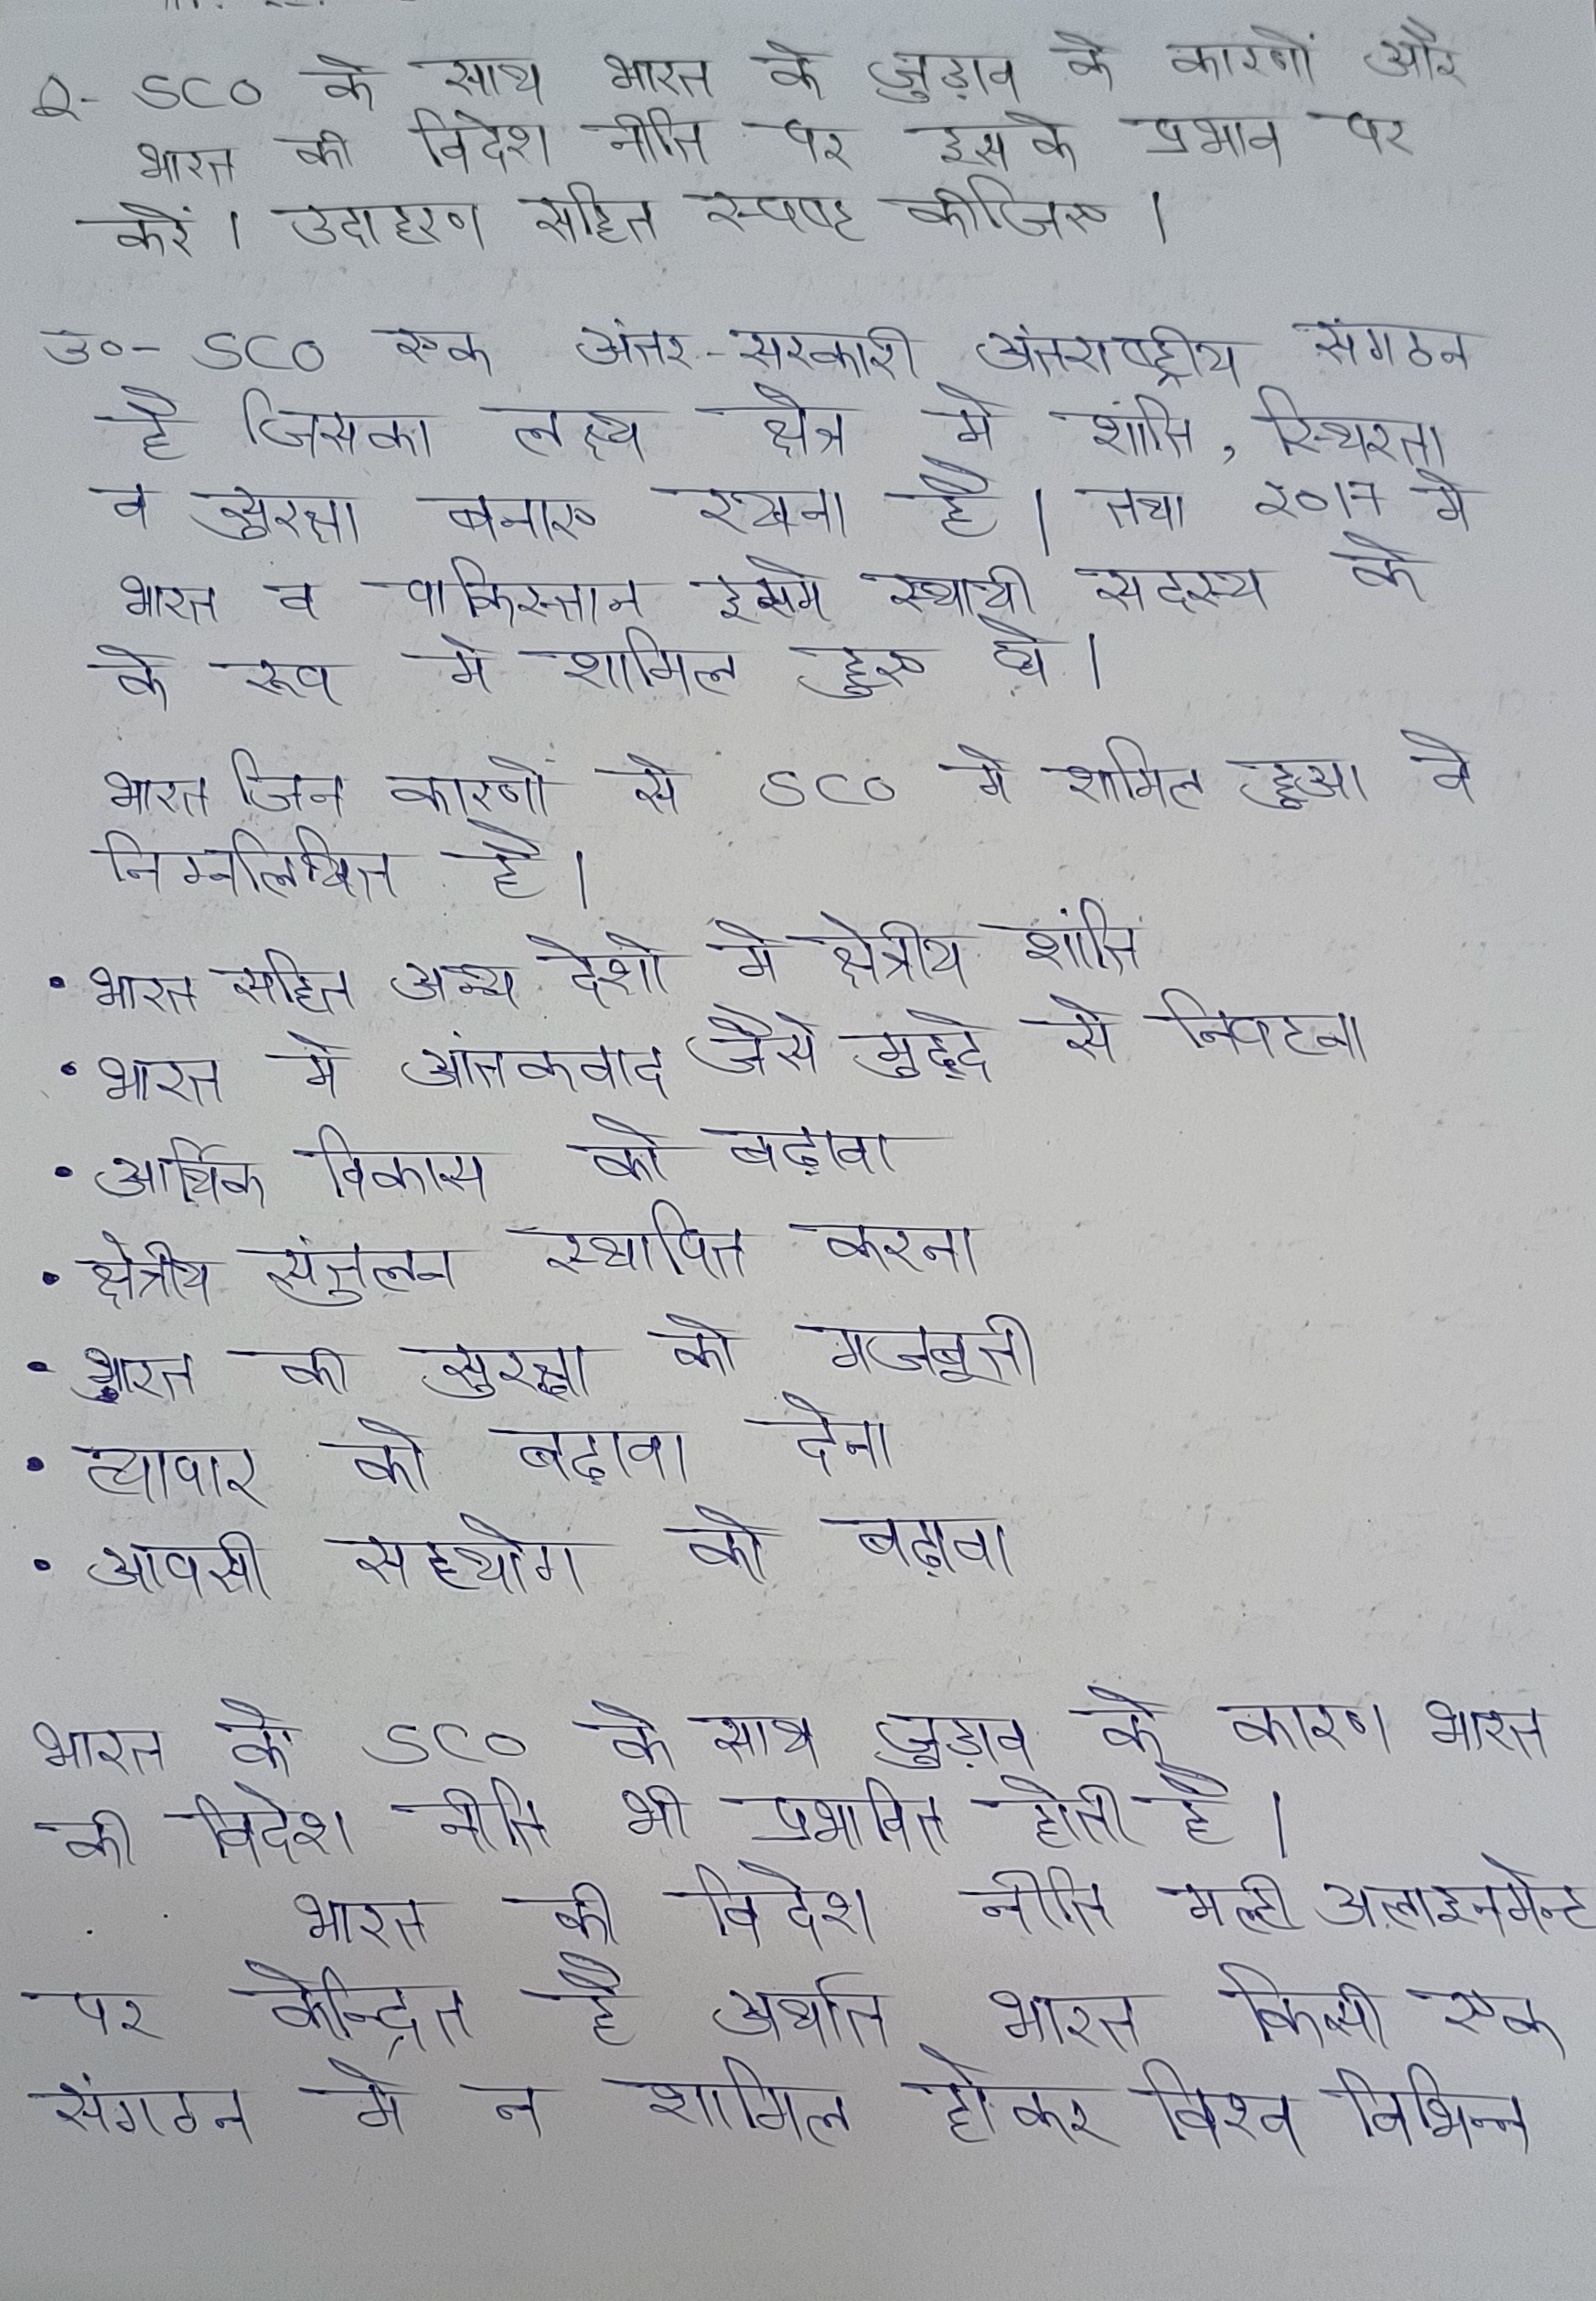 Q- SCO के साथ भारत के जुड़ाव के कारणों और
भारत की विदेश नीति पर इसके प्रभाव पर
करें । उदाहरण सहित स्पष्ट कीजिए ।
उ०- SCO एक अंतर-सरकारी अंतराष्ट्रीय संगठन
है जिसका लक्ष्य क्षेत्र मे शांति, स्थिरता
व सुरक्षा बनाए रखना है । तथा 2017 मे
भारत व पाकिस्तान इसमे स्थायी सदस्य के
के रूप मे शामिल हुए थे ।
भारत जिन कारणो से SCO मे शामिल हुआ वे
निम्नलिखित है ।
• भारत सहित अन्य देशो मे क्षेत्रीय शांति
• भारत मे आंतकवाद जैसे मुद्दे से निपटना
• आर्थिक विकास को बढ़ावा
• क्षेत्रीय संतुलन स्थापित करना
• भारत की सुरक्षा को मजबूती
• व्यापार को बढ़ावा देना
• आपसी सहयोग को बढ़ावा
भारत के SCO के साथ जुड़ाव के कारण भारत
की विदेश नीति भी प्रभावित होती है ।
भारत की विदेश नीति मल्टी अलाइनमेन्ट
पर केन्द्रित है अर्थात भारत किसी एक
संगठन मे न शामिल होकर विश्व विभिन्न